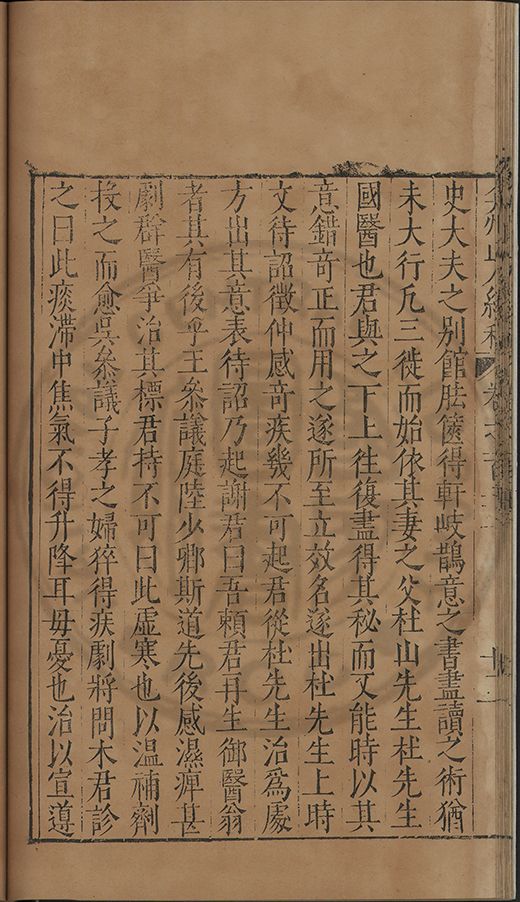 史大夫之別館胠篋得軒岐鵲意之書盡讀之術猶
未大行凡三徙而始依其妻之父杜山先生杜先生
國醫也君與之下上徃復盡得其秘而又能時以其
意錯竒正而用之遂所至立效名遂出杜先生上時
文待詔徵仲感竒疾幾不可起君從杜先生治爲處
方出其意表待詔乃起謝君曰吾賴君再生御醫翁
者其有後乎王叅議庭陸少卿斯道先後感濕痺甚
劇群醫爭治其標君持不可曰此虛寒也以温補劑
投之而愈吳叅議子孝之婦猝得疾劇將問木君診
之曰此痰滯中焦氣不得升降耳毋憂也治以宣導